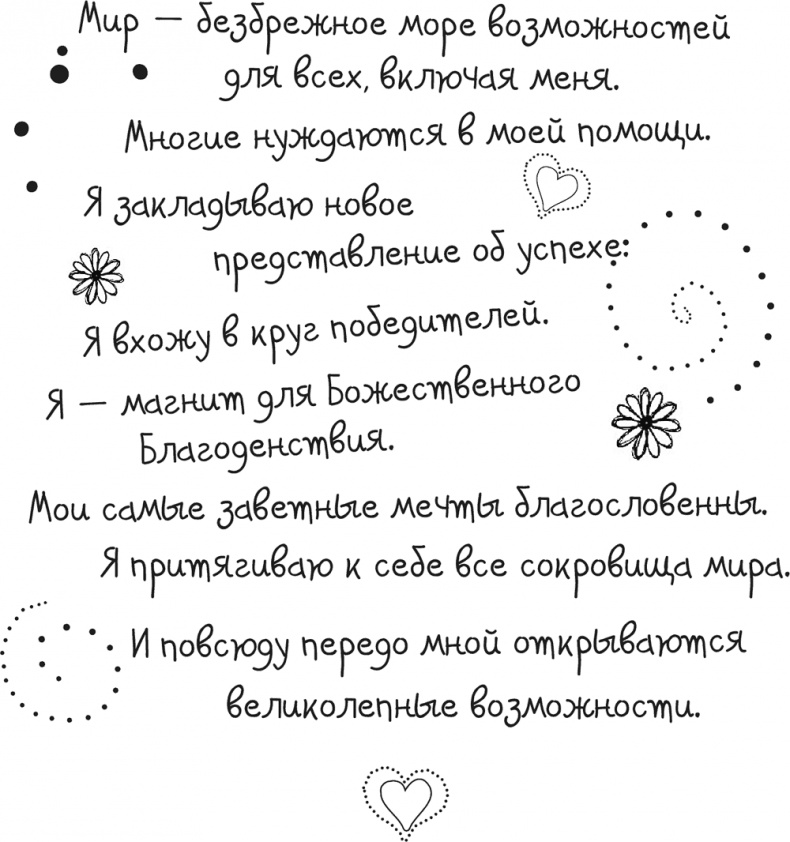 Мир — безбрежное море возможностей
для всех, включая меня.
Многие нуждаются в моей помощи.
Я закладываю новое
представление об успехе:
Я вхожу в круг победителей.
Я — магнит для Божественного
Благоденствия.
Мои самые заветные мечты благословенны.
Я притягиваю к себе все сокровища мира.
И повсюду передо мной открываются
великолепные возможности.